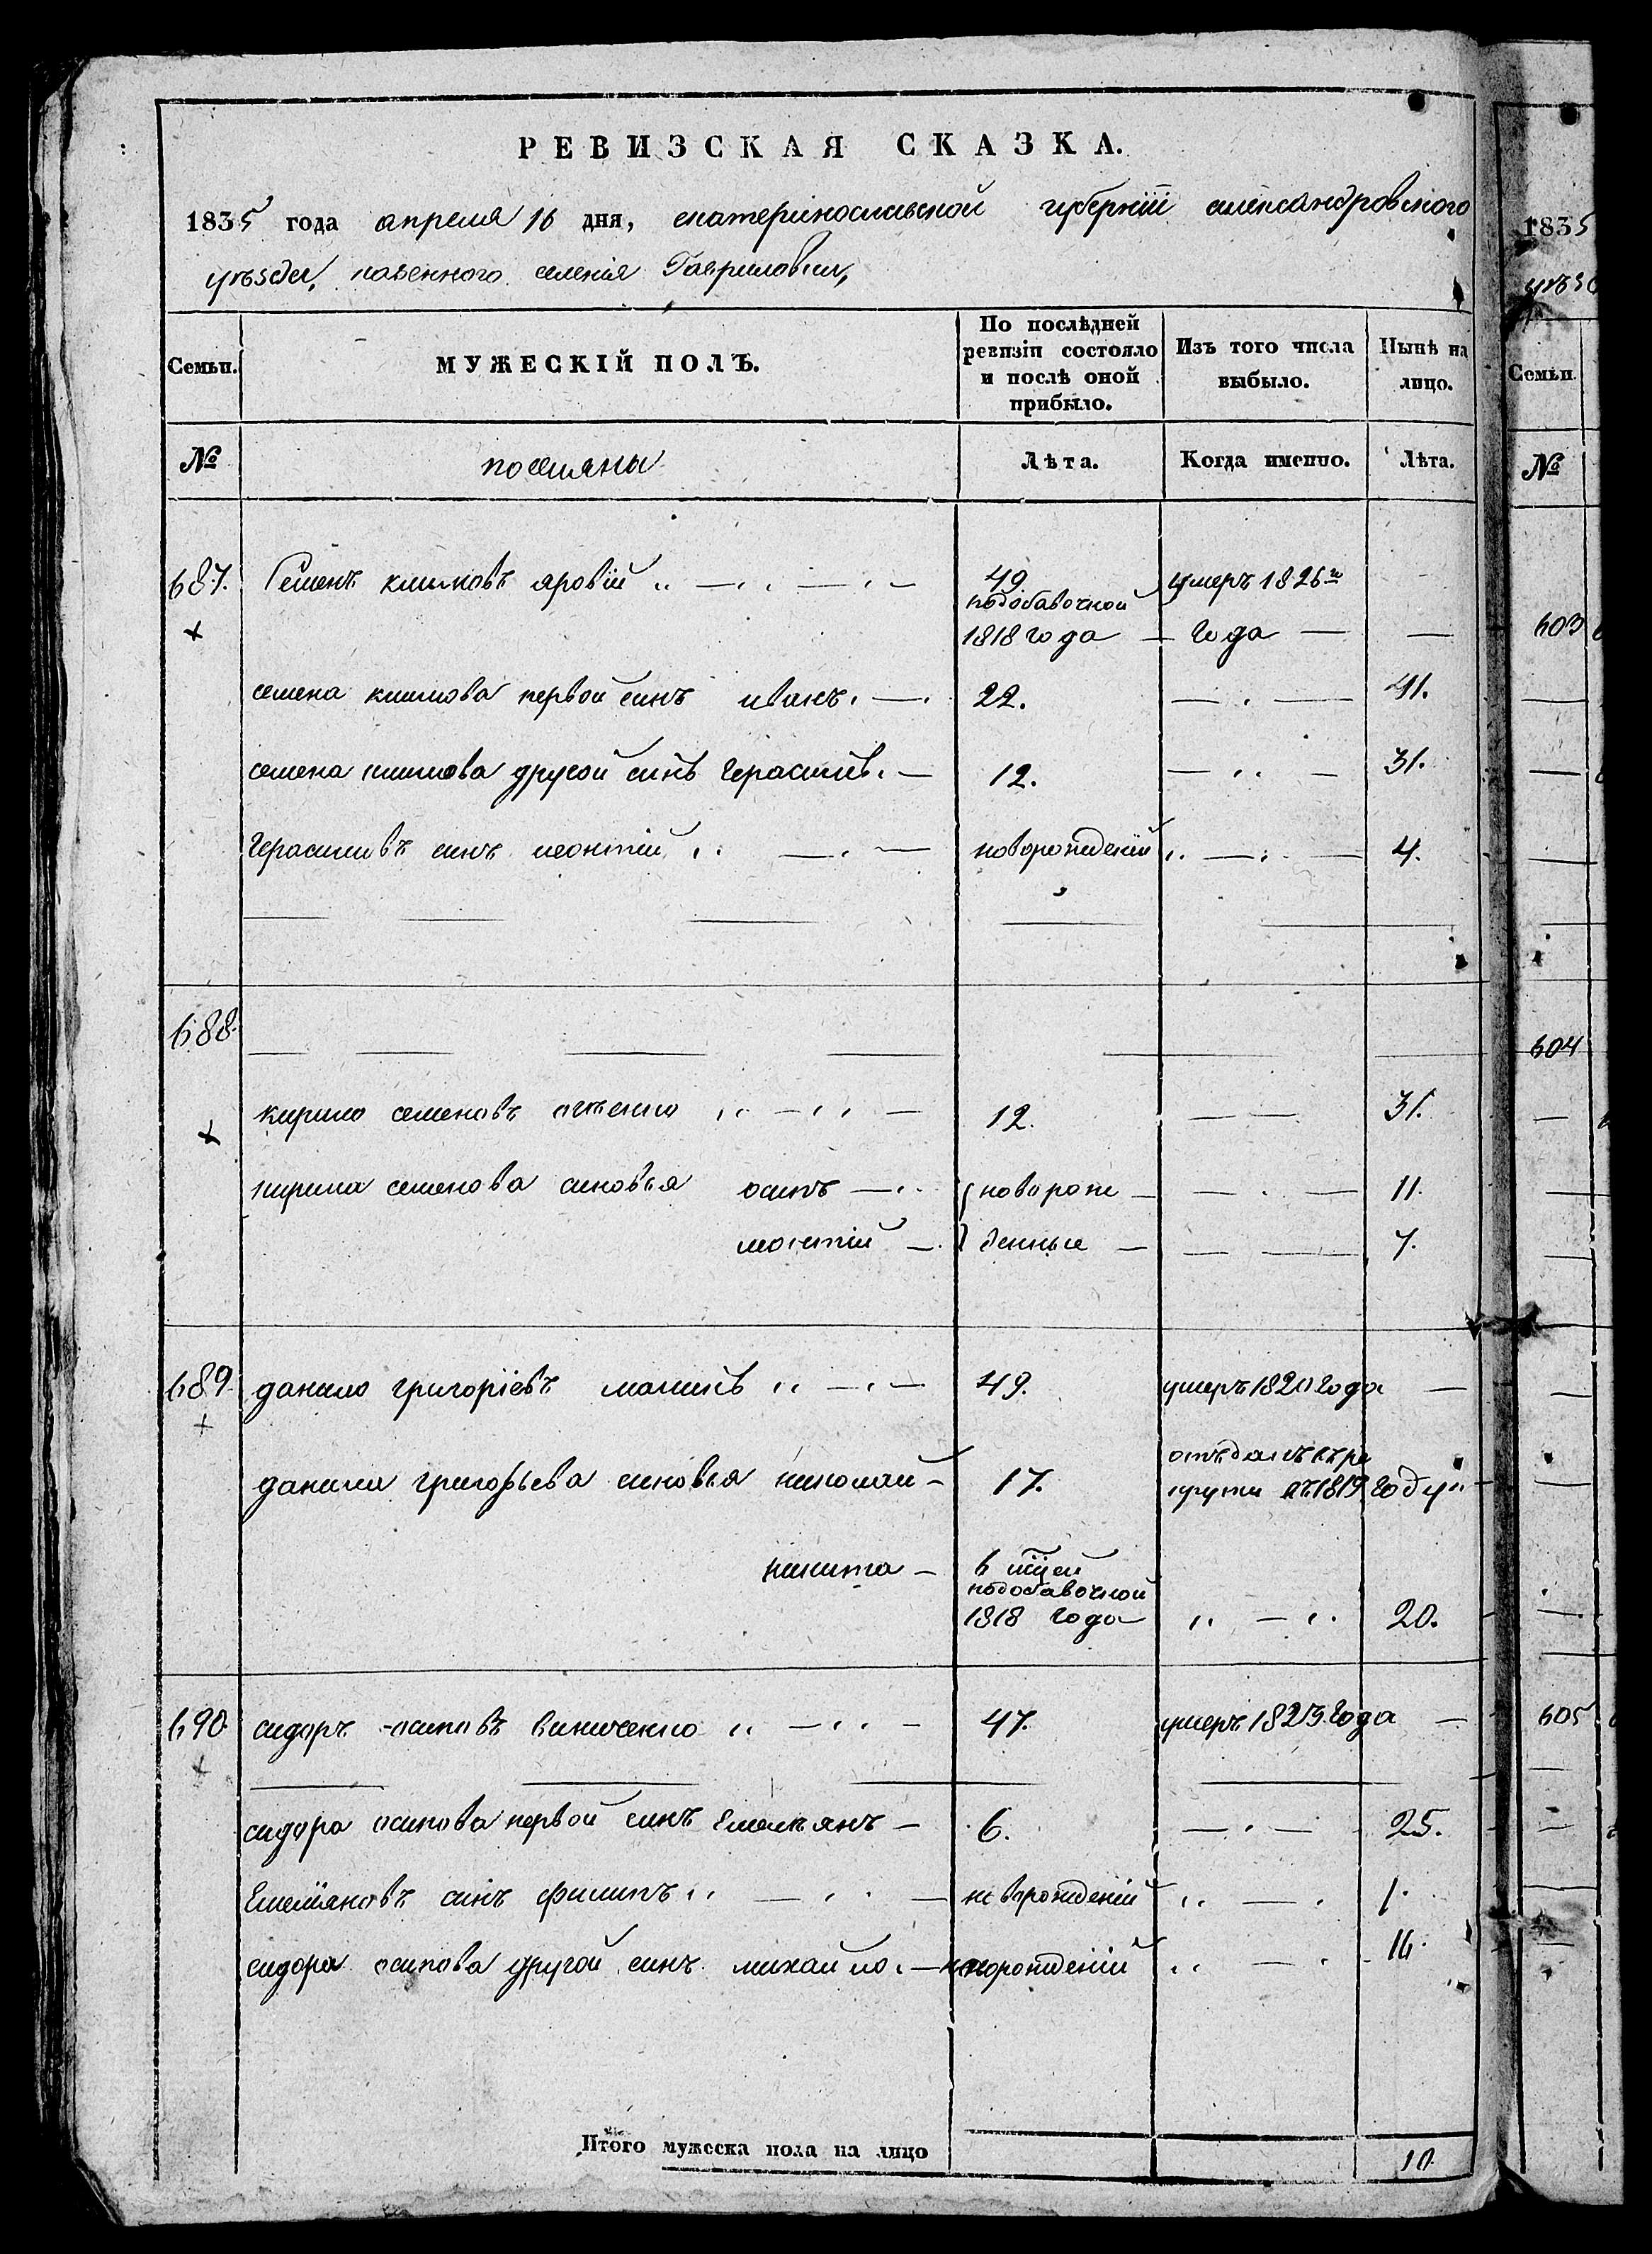 РЕВИЗСКАЯ СКАЗКА.
1835 года апреля 16 дня, екатеринославской губерніи александровского
уѣзда, казенного селенія Гавриловки,
Семьи. МУЖЕСКІЙ ПОЛЪ. По послѣдней ревизіи состояло и послѣ оной прибыло. Изъ того числа выбыло. Нынѣ на лицо.
№ поселяны Лѣта. Когда именно. Лѣта.
687. Семенъ климовъ яровій 49 подобавочной 1818 года умеръ 1826го года
семена климова первой синъ иванъ 22. 41.
семена климова другой синъ герасимъ 12. 31.
Герасимовъ синъ леонтій новорожденій 4.
688.
кирило семеновъ 12. 31.
кирила семенова синовья осипъ новорож 11.
леонтій денные 7.
689 данило григоріевъ 49. умеръ 1820 года
данила григорьева синовья николай 17. отъдалъ въ ре
круты въ 1819 году
никита 6
подобавочной
1818 года 20.
690 сидоръ осиповъ виниченко 47. умеръ 1823 года
сидора осипова первой синъ Емельянъ 6. 25.
Емельяновъ синъ филипъ новорожденій 1.
сидора осипова другой синъ михайло новорожденій 16.
Итого мужеска пола на лицо 10
1835
уѣз
Семьи
№
603
604
605